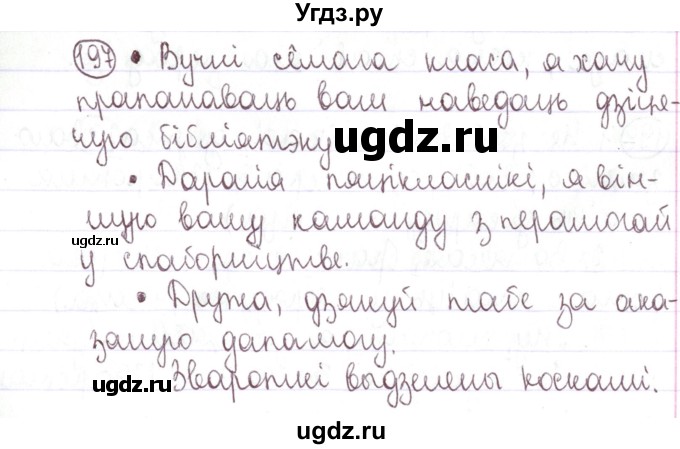 Угдз.ру
197 • Вучні сёмага класа, я хачу
прапанаваць вам наведаць дзіця-
чую бібліятэку
ugdz.ru
• Дарагія пяцікласнікі, я він-
шую вашу каманду з перамогай
ugdz.ru
у спаборніцтве.
• Дружа, дзякуй табе за ака-
заную дапамогу.
ugdz.ru
Звароткі выдзелены коскамі.
ugdz.ru
ugdz.ru